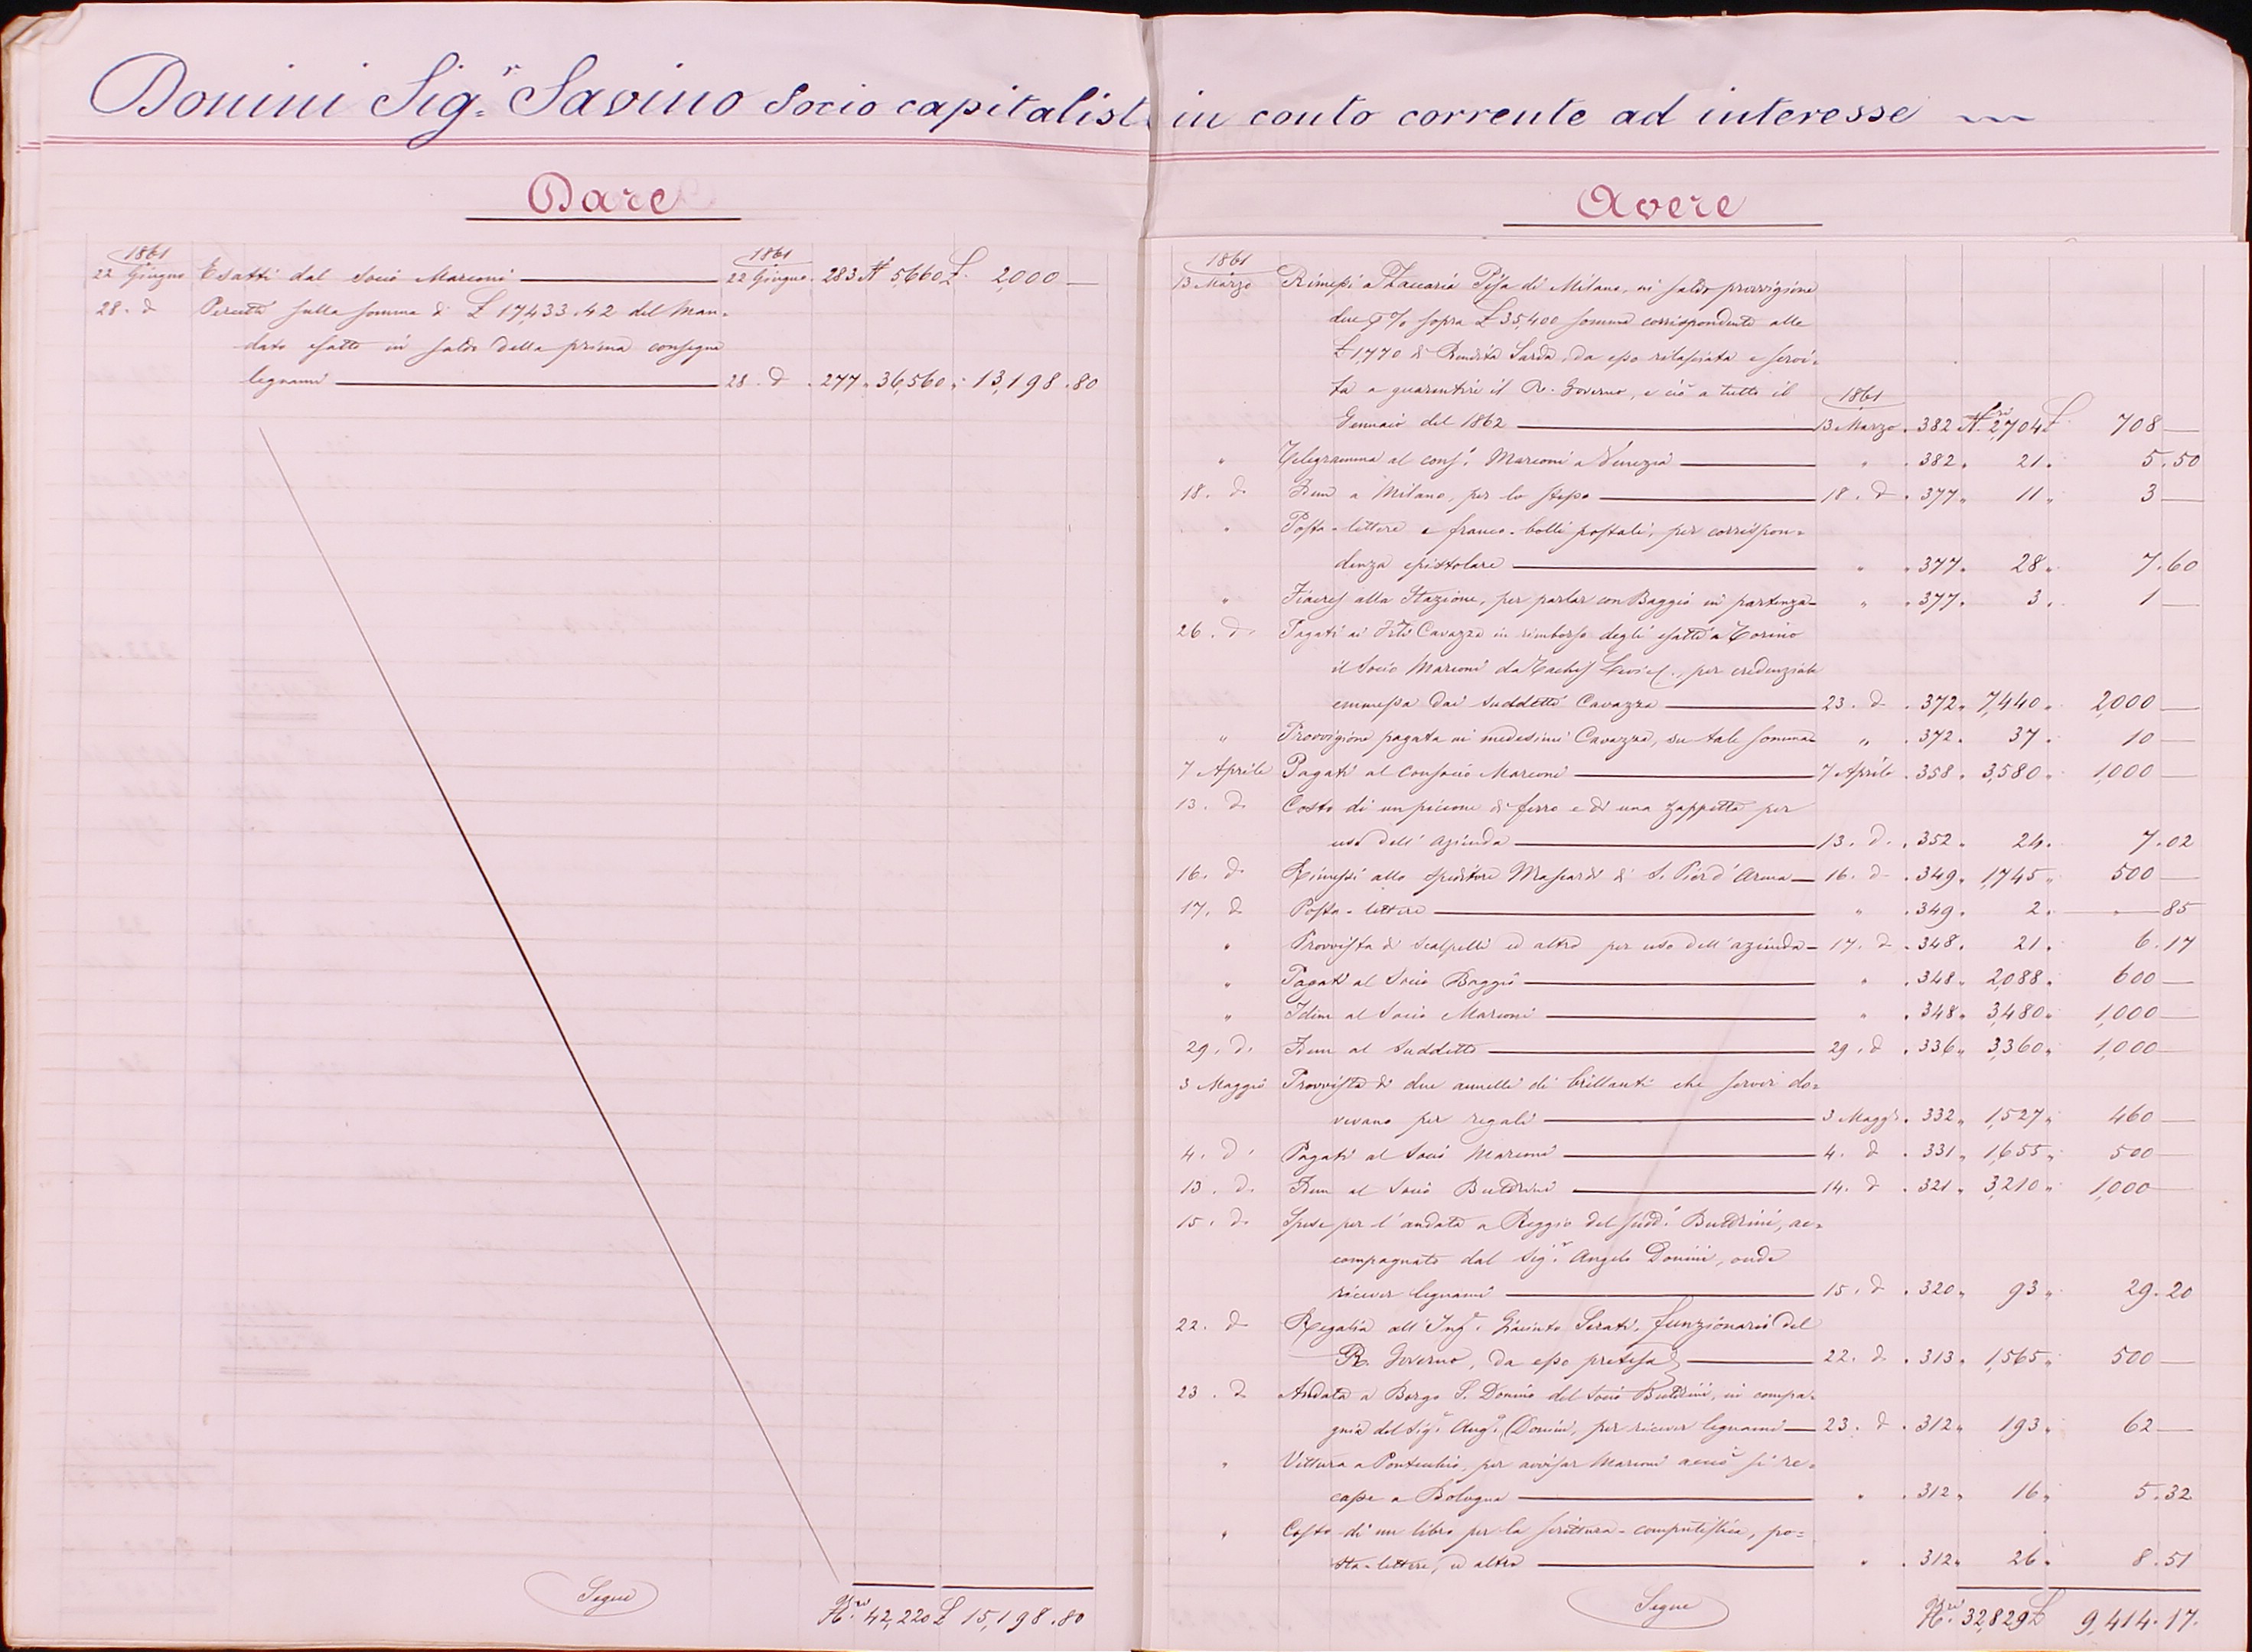 Donini Sig.r Savino Socio capitalist in conto corrente ad interesse
Dare
1861 1861
22 Giugno Esatti dal Socio Marconi 22 Giugno 283 N 5,660 £ 2,000 —
28. d Percetti sulla somma di £ 17,433.42 del Man-
dato esatto in saldo della prima consegna
legnami 28. d 277 36,560 13,198.80
Segue
N.ri 42,220 £ 15,198.80
Avere
1861
13 Marzo Rimessi a Zaccaria Pisa di Milano, in saldo provvigione
due % sopra £ 35,400 somma corrispondente alle
£ 1,770 di Rendita Sarda, da esso rilasciata e servi-
ta a guarentire il R. Governo, e ciò a tutto il 1861
Gennaio del 1862 13 Marzo 382 N.ri 2,704 £ 708 —
" Telegramma al cons.o Marconi a Venezia " 382 21 5.50
18. d Idem a Milano, per lo stesso 18. d 377 11 3 —
" Posta-lettere e franco-bolli postali, per corrispon-
denza epistolare " 377 28 7.60
" Fiacres alla Stazione, per parlar con Baggio in partenza " 377 3 1 —
26. d Pagati ai F.lli Cavazza in rimborso degli esatti a Torino
il Socio Marconi da per credenziale
emmessa dai suddetti Cavazza 23. d 372 7,440 2,000 —
" Provvigione pagata ai medesimi Cavazza, su tale somma " 372 37 10 —
7 Aprile Pagati al Consocio Marconi 7 Aprile 358 3,580 1,000 —
13. d Costo di un piccone di ferro e di una zappetta per
uso dell'azienda 13. d 352 24 7.02
16. d Rimessi allo speditore Mascardi di S. Pier d'Arena 16. d 349 1,745 500 —
17. d Posta-lettere " 349 2 " — 85
" Provvista di scalpelli ed altro per uso dell'azienda 17. d 348 21 6.17
" Pagati al Socio Baggio " 348 2,088 600 —
" Idem al Socio Marconi " 348 3,480 1,000 —
29. d Idem al suddetto 29. d 336 3,360 1,000 —
3 Maggio Provvista di due annelli di brillanti che servir do-
vevano per regali 3 Magg.o 332 1,527 460 —
4. d Pagati al Socio Marconi 4. d 331 1,655 500 —
13. d Idem al Socio Buldrini 14. d 321 3,210 1,000 —
15. d Spese per l'andata a Reggio del sudd.o Buldrini, ac-
compagnato dal Sig.r Angelo Donini, onde
ricever legnami 15. d 320 93 29.20
22. d Regalia all'Ing.e Giacinto Serati, funzionario del
R. Governo, da esso pretesa 22. d 313 1,565 500 —
23. d Andata a Borgo S. Donino del Socio Buldrini, in compa-
gnia del Sig.r Ang.o Donini, per ricever legnami 23. d 312 193 62 —
" Vettura a Pontecchio, per avvisar Marconi acciò si re-
casse a Bologna " 312 16 5.32
" Costo di un libro per la scrittura-computistica, po-
sta-lettere, ed altro " 312 26 8.51
Segue
N.ri 32,829 £ 9,414.17